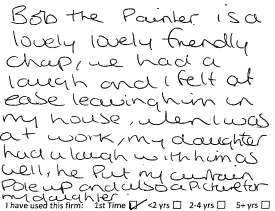 Bob the Painter is a
lovely lovely friendly
chap, we had a
laugh and i felt at
ease leaving him in
my house, when I was
at work, my daughter
had a laugh with him as
well, he put my curtain
Pole up and also a Picture for
my daughter.
I have used this firm: 1st Time ☑ <2 yrs ☐ 2-4 yrs ☐ 5+ yrs ☐